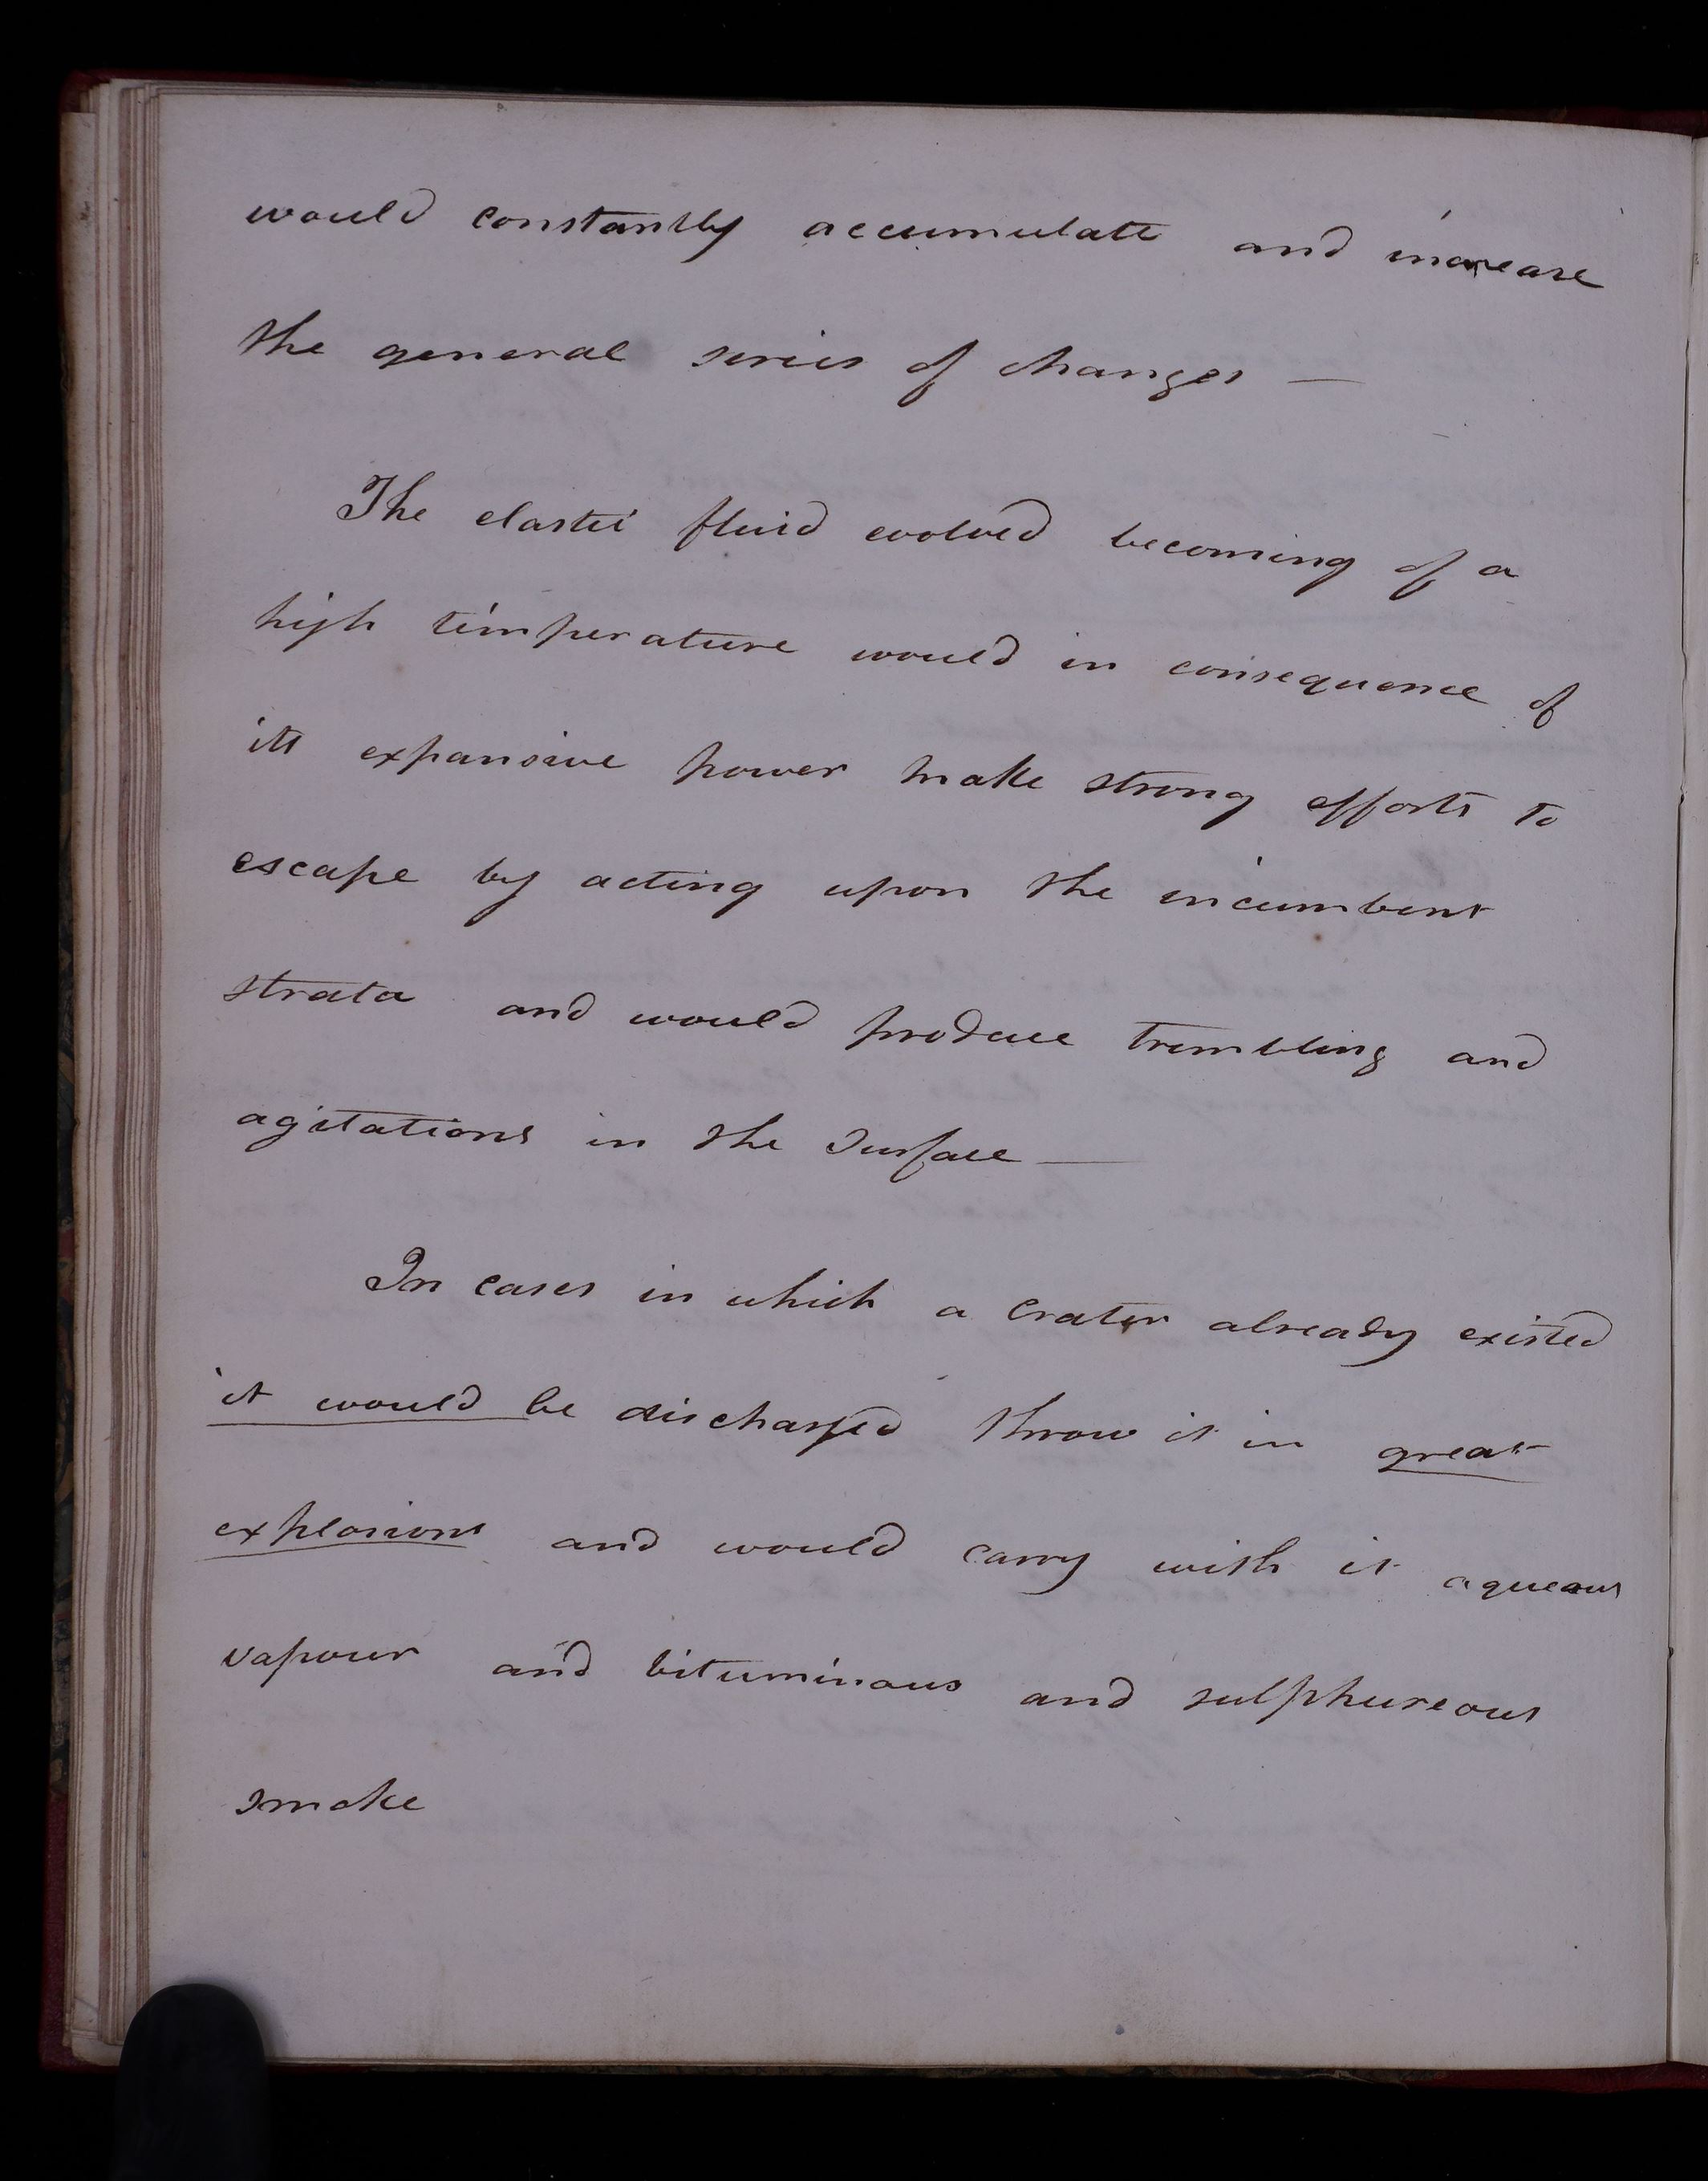 would constantly accumulate and increase
the general series of changes —
The elastic fluid evolved becoming of a
high temperature would in consequence of
its expansive power make strong efforts to
escape by acting upon the incumbent
strata and would produce trembling and
agitations in the surface —
In cases in which a crater already existed
it would be discharged throw it in great
explosions and would carry with it aqueous
vapour and bituminous and sulphureous
smoke